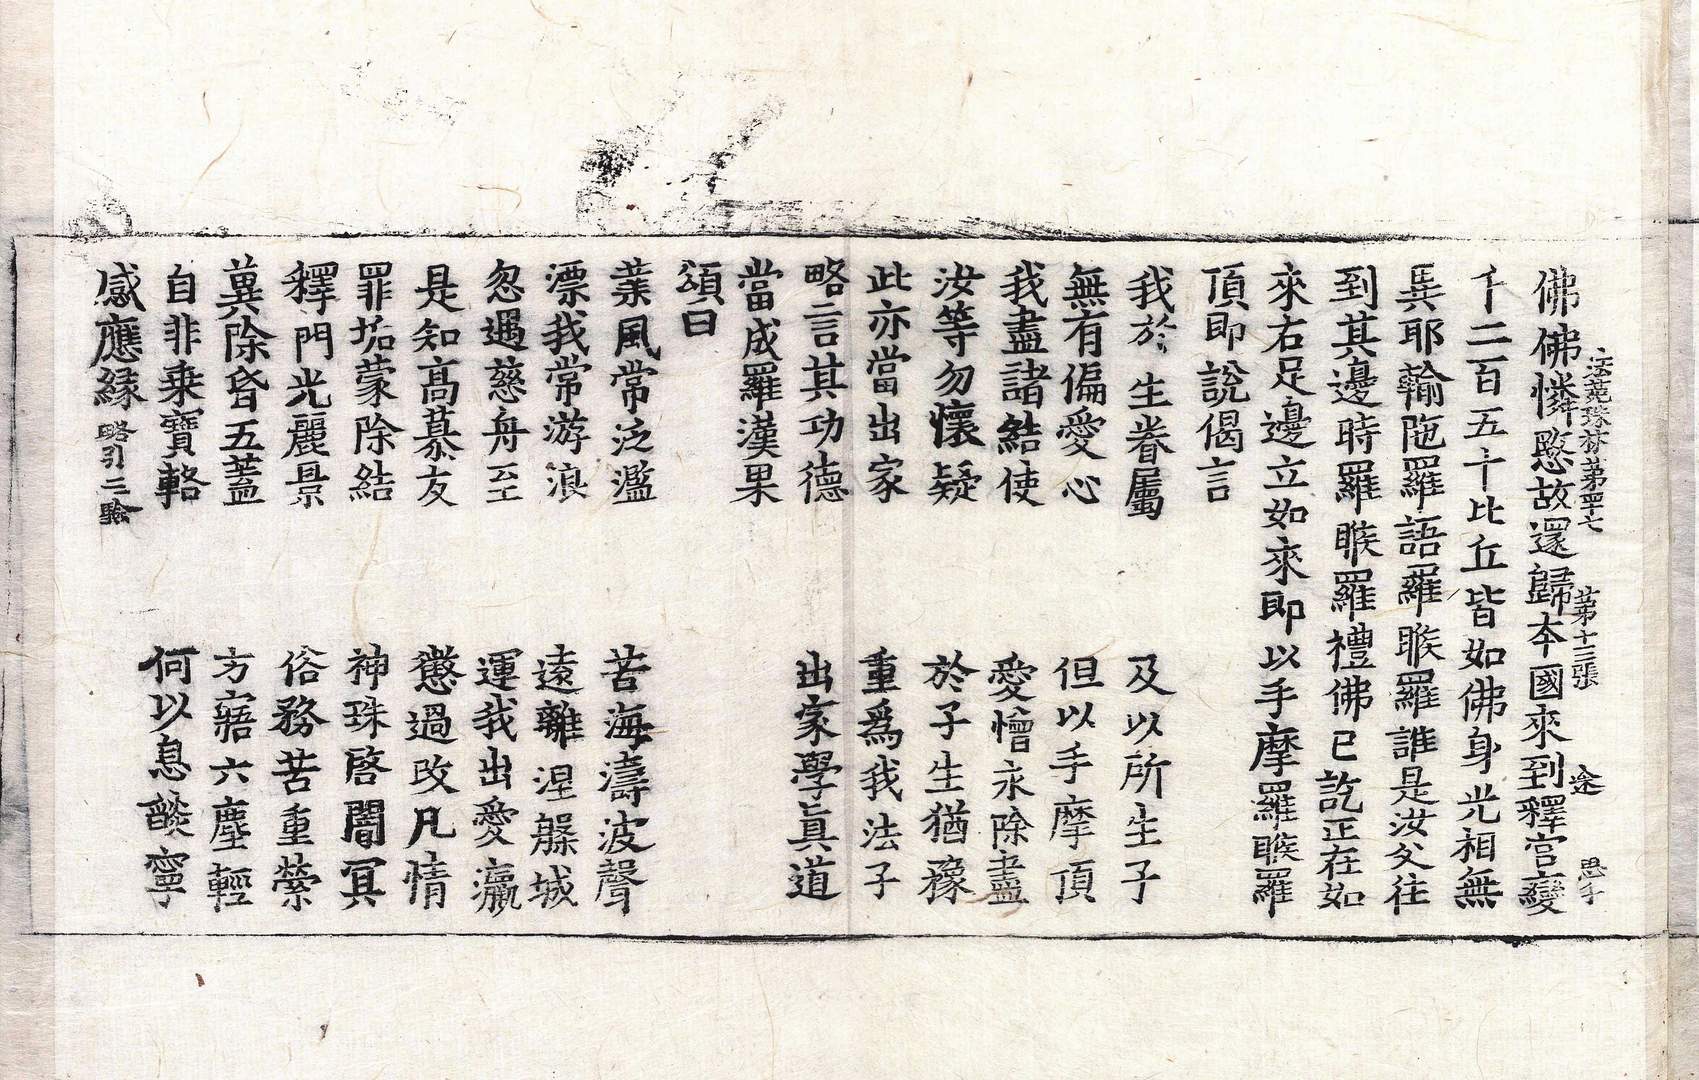 法苑珠林第四十七 第十三張 途
佛佛憐愍故還歸本國來到釋宮變
千二百五十比丘皆如佛身光相無
異耶輸陁羅語羅睺羅誰是汝父往
到其邊時羅睺羅禮佛已訖正在如
來右足邊立如來即以手摩羅睺羅
頂即說偈言
我於生眷屬 及以所生子
無有偏愛心 但以手摩頂
我盡諸結使 愛憎永除盡
汝等勿懷疑 於子生猶豫
此亦當出家 重爲我法子
略言其功德 出家學眞道
當成羅漢果
頌曰
業風常泛濫 苦海濤波聲
漂我常游浪 遠離涅槃城
忽遇慈舟至 運我出愛瀛
是知高慕友 懲過改凡情
罪垢蒙除結 神珠啓闇冥
釋門光麗景 俗務苦重縈
冀除昏五蓋 方寤六塵輕
自非乘寶輅 何以息寧
感應緣 略引二驗